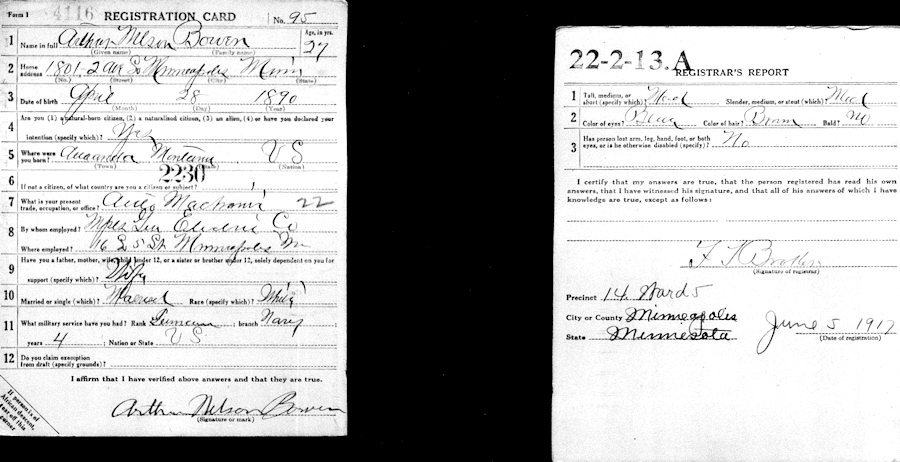 Form 1 4116 REGISTRATION CARD No. 95
1 Name in full Arthur Nelson Bowen Age, in yrs. 27
(Given name) (Family name)
2 Home address 1801. 2 Ave So Minneapolis Minn
(No.) (Street) (City) (State)
3 Date of birth April 28 1890
(Month) (Day) (Year)
4 Are you (1) a natural-born citizen, (2) a naturalized citizen, (3) an alien, (4) or have you declared your
intention (specify which)? Yes
5 Where were you born? Anaconda Montana US
(Town) (State) (Nation)
2230
6 If not a citizen, of what country are you a citizen or subject?
7 What is your present trade, occupation, or office? Auto Machinist 22
8 By whom employed? Mpls Gen Electric Co
Where employed? 16 S 5 St. Minneapolis Mn
9 Have you a father, mother, wife, child under 12, or a sister or brother under 12, solely dependent on you for
support (specify which)? Wife
10 Married or single (which)? Married Race (specify which)? White
11 What military service have you had? Rank ; branch Navy ;
years 4 ; Nation or State US
12 Do you claim exemption from draft (specify grounds)?
I affirm that I have verified above answers and that they are true.
Arthur Nelson Bowen
(Signature or mark)
If person is of African descent, tear off this corner
22-2-13. A
REGISTRAR'S REPORT
1 Tall, medium, or short (specify which)? Med Slender, medium, or stout (which)? Med
2 Color of eyes? Blue Color of hair? Brown Bald? No
3 Has person lost arm, leg, hand, foot, or both eyes, or is he otherwise disabled (specify)? No
I certify that my answers are true, that the person registered has read his own
answers, that I have witnessed his signature, and that all of his answers of which I have
knowledge are true, except as follows:
(Signature of registrar)
Precinct 14. Ward 5
City or County Minneapolis
State Minnesota June 5 1917
(Date of registration)